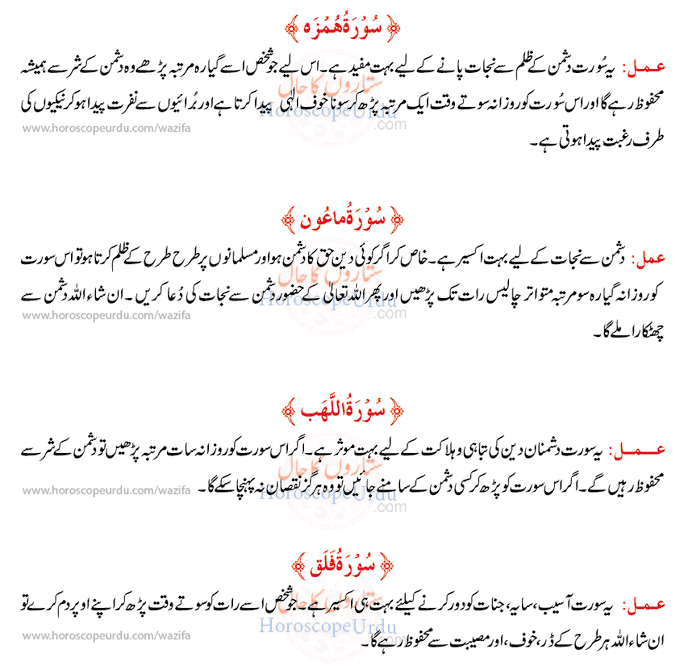 ﴿ سُوْرَۃُ هُمَزَہ ﴾
عمل: یہ سُورت دشمن کے ظلم سے نجات پانے کے لیے بہت مفید ہے۔ اس لیے جو شخص اسے گیارہ مرتبہ پڑھے وہ دشمن کے شر سے ہمیشہ
محفوظ رہے گا اور اس سُورت کو روزانہ سوتے وقت ایک مرتبہ پڑھ کر سونا خوف الٰہی پیدا کرتا ہے اور بُرائیوں سے نفرت پیدا ہو کر نیکیوں کی
طرف رغبت پیدا ہوتی ہے۔
ستاروں کا حال
HoroscopeUrdu.com
www.horoscopeurdu.com/wazifa
﴿ سُوْرَۃُ مَاعُون ﴾
عمل: دشمن سے نجات کے لیے بہت اکسیر ہے۔ خاص کر اگر کوئی دین حق کا دشمن ہو اور مسلمانوں پر طرح طرح کے ظلم کرتا ہو تو اس سورت
کو روزانہ گیارہ سو مرتبہ متواتر چالیس رات تک پڑھیں اور پھر اللہ تعالٰی کے حضور دشمن سے نجات کی دُعا کریں۔ ان شاء اللہ دشمن سے
چھٹکارا ملے گا۔
ستاروں کا حال
HoroscopeUrdu.com
www.horoscopeurdu.com/wazifa
﴿ سُوْرَۃُ اللَّهَب ﴾
عمل: یہ سورت دشمنان دین کی تباہی و ہلاکت کے لیے بہت موثر ہے۔ اگر اس سورت کو روزانہ سات مرتبہ پڑھیں تو دشمن کے شر سے
محفوظ رہیں گے۔ اگر اس سورت کو پڑھ کر کسی دشمن کے سامنے جائیں تو وہ ہرگز نقصان نہ پہنچا سکے گا۔
ستاروں کا حال
HoroscopeUrdu.com
www.horoscopeurdu.com/wazifa
﴿ سُوْرَۃُ فَلَق ﴾
عمل: یہ سورت آسیب، سایہ، جنات کو دور کرنے کیلئے بہت ہی اکسیر ہے۔ جو شخص اسے رات کو سوتے وقت پڑھ کر اپنے اوپر دم کرے تو
ان شاء اللہ ہر طرح کے ڈر، خوف، اور مصیبت سے محفوظ رہے گا۔
ستاروں کا حال
HoroscopeUrdu.com
www.horoscopeurdu.com/wazifa